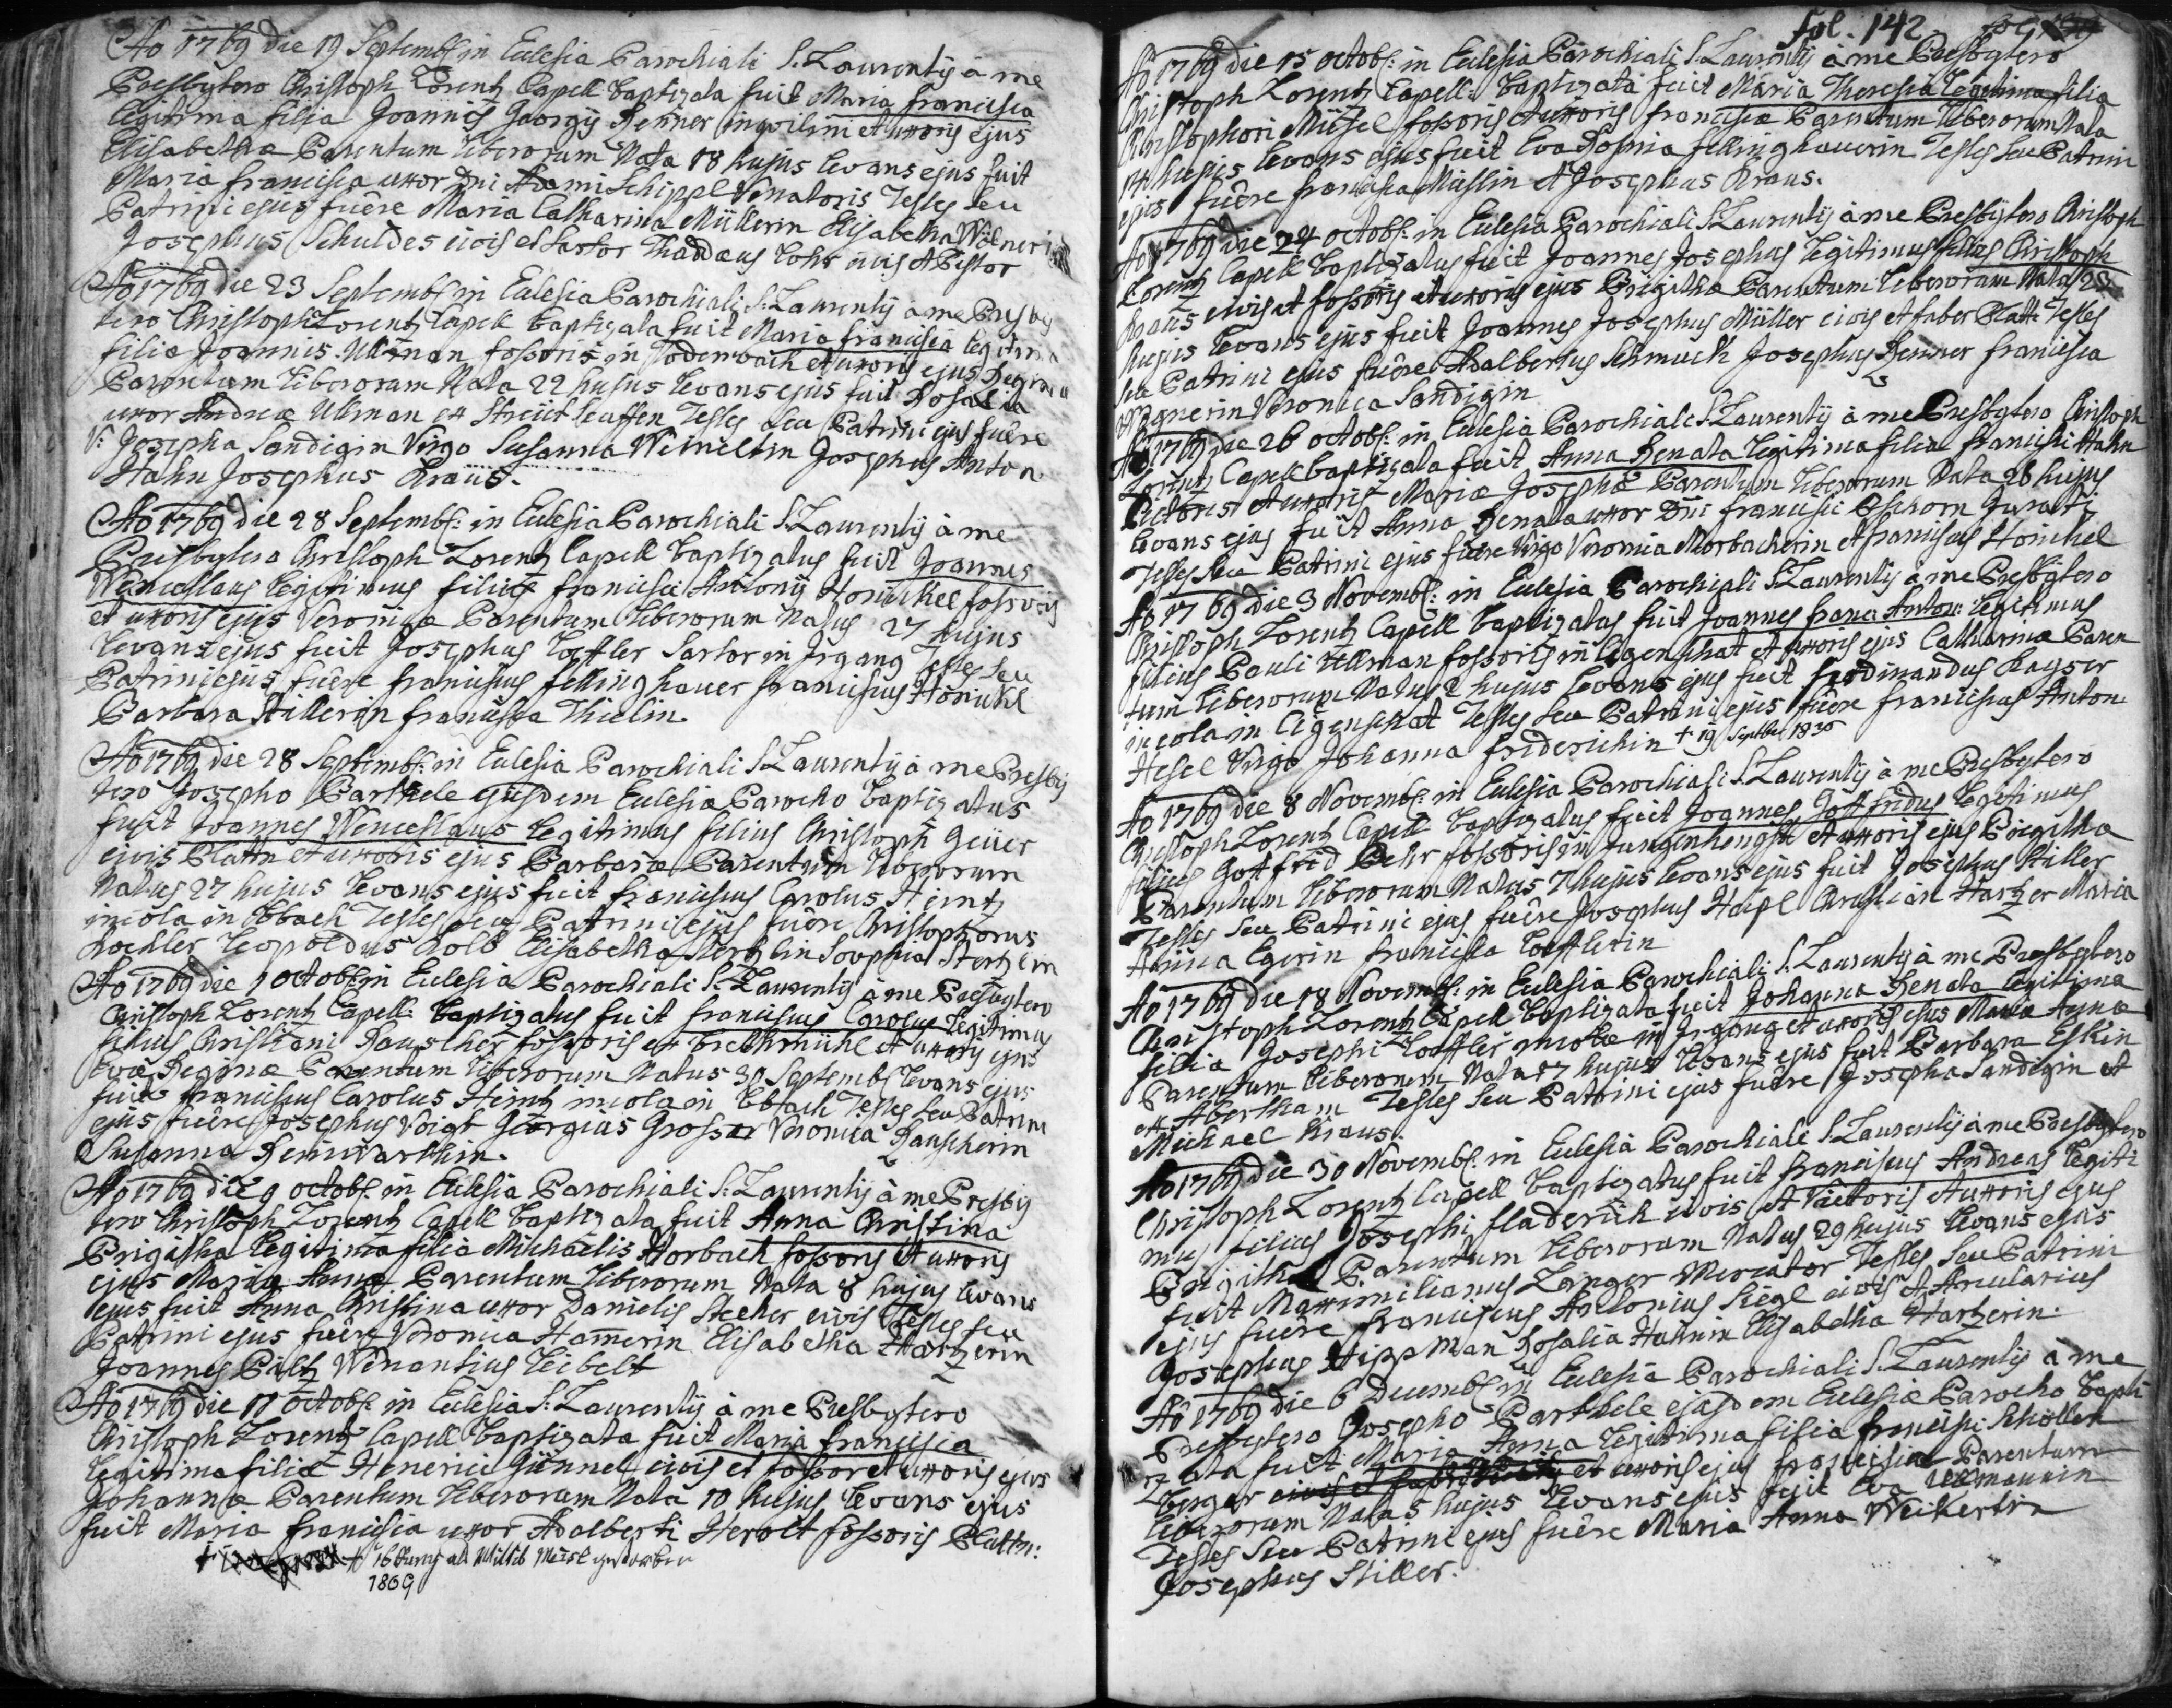 Ao 1769 die 19 Septemb: in Eclesia Parochiali S. Laurentij à me
Presbytero Christoph Lorentz Capell baptizata fuit Maria francisca
legitima filia Joannis Georgij Renner inquilini et uxoris ejus
Elisabethæ Parentum liberorum Nata 18 hujus levans ejus fuit
Maria francisca uxor Dni Adami Schippl Venatoris Testes seu
Patrini ejus fuêre Maria Catharina Müllerin Elisabetha
Josephus Schuldes civis et Sartor Thaddæus Lohr civis et Pistor
Ao 1769 die 23 Septemb: in Eclesia Parochiali S. Laurentij à me Presby
tero Christoph Lorentz Capell baptizata fuit Maria francisca legitima
filia Joannis Ullman fossoris in Todenbach et uxoris ejus Regina
Parentum liberorum Nata 22 hujus levans ejus fuit Rosalia
uxor Andreæ Ullman ex Streitseuffen Testes seu Patrini ejus fuêre
V: Josepha Sandigin Virgo Susanna Weineltin Josephus Anton
Hahn Josephus Kraus.
Ao 1769 die 28 Septemb: in Eclesia Parochiali S. Laurentij à me
Presbytero Christoph Lorentz Capell baptizatus fuit Joannes
Wenceslaus legitimus filius francisci Antonij Honickel fossoris
et uxoris ejus Veronica Parentum liberorum Natus 27 hujus
levans ejus fuit Josephus Loffler Sartor in Irgang Testes seu
Patrini ejus fuêre franciscus fellinghauer franciscus Honickl
Barbara Stillerin francisca Thielin.
Ao 1769 die 28 Septemb: in Eclesia Parochiali S. Laurentij à me Presby
tero Josepho Parthele ejusdem Eclesia Parocho baptizatus
fuit Joannes Wenceslaus legitimus filius Christoph Geüer
civis Plattn et uxoris ejus Barbaræ Parentum liberorum
Natus 27 hujus levans ejus fuit franciscus Carolus Heintz
incola in Ebbach Testes seu Patrini ejus fuêre Christophorus
Kochler Leopoldus Kolb Elisabetha Stertzlin Sovphia Stertzlin
Ao 1769 die 1 octob: in Eclesia Parochiali S. Laurentij à me Presbytero
Christoph Lorentz Capell: baptizatus fuit franciscus Carolus legitimus
filius Christiani Rauscher fossoris ex Brettmühl et uxoris ejus
Evæ Reginæ Parentum liberorum Natus 30 Septemb: levans ejus
fuit franciscus Carolus Heintz incola in Ebbach Testes seu Patrini
ejus fuêre Josephus Voigt Georgius Grosser Veronica Rauscherin
Susanna Reinwarthin.
Ao 1769 die 9 octob: in Eclesia Parochiali S. Laurentij à me Presby
tero Christoph Lorentz Capell baptizata fuit Anna Christina
Brigitha legitima filia Michaelis Horbach fossoris et uxoris
ejus Mariæ Annæ Parentum liberorum Nata 8 hujus levans
ejus fuit Anna Christina uxor Danielis Stecher civis Testes seu
Patrini ejus fuêre Veronica Hamerin Elisabetha Hartzerin
Joannes Piltz Wenantius Leibelt
Ao 1769 die 11 octob: in Eclesia S: Laurentij à me Presbytero
Christoph Lorentz Capell baptizata fuit Maria francisca
legitima filia Henerici Günnel civis et fossor et uxoris ejus
Johannæ Parentum liberorum Nata 10 hujus levans ejus
fuit Maria francisca uxor Adalberti Herolt fossoris Plattn:
gestorben
1869
fol. 142
Ao 1769 die 15 octob: in Eclesia Parochiali S. Laurentij à me Presbytero
Christoph Lorentz Capell: baptizata fuit Maria Theresia legitima filia
Christophori Müssel fossoris et uxoris francisca Parentum liberorum Nata
14 hujus levans ejus fuit Eva Rosina fellinghauerin Testes seu Patrini
ejus fuêre francisca Müslin et Josephus Kraus.
Ao 1769 die 24 octob: in Eclesia Parochiali S. Laurentij à me Presbytero Christoph
Lorentz Capell baptizatus fuit Joannes Josephus legitimus filius Christoph
Kraus civis et fossoris et uxoris ejus Brigitha Parentum liberorum Natus 23
hujus levans ejus fuit Joannes Josephus Müller civis et faber Platt: Testes
seu Patrini ejus fuêre Adalbertus Schmuch Josephus Renner francisca
Wagnerin Veronica Sandigin
Ao 1769 die 26 octob: in Eclesia Parochiali S. Laurentij à me Presbytero Christoph
Lorentz Capell baptizata fuit Anna Renata legitima filia francisci Hahn
Pictoris et uxoris Mariæ Josephæ Parentum liberorum Nata 26 hujus
levans ejus fuit Anna Renata uxor Dni francisci Eschorn Jurati
Testes seu Patrini ejus fuêre Virgo Veronica Morbacherin et franciscus Honickel
Ao 1769 die 3 Novemb: in Eclesia Parochiali S. Laurentij à me Presbytero
Christoph Lorentz Capell baptizatus fuit Joannes franc Anton: legitimus
filius Pauli Ullman fossoris in Eigenschat et uxoris ejus Catharinæ Paren
tum liberorum Natus 2 hujus levans ejus fuit ferdinandus Kayser
incola in Eigenschat Testes seu Patrini ejus fuêre franciscus Anton
Hesel Virgo Johanna friderichin + 19 Septber 1830
Ao 1769 die 8 Novemb: in Eclesia Parochiali S. Laurentij à me Presbytero
Christoph Lorentz Capell baptizatus fuit Joannes Gottfridus legitimus
filius Gottfrid Behr fossoris in Jungenhengst et uxoris ejus Brigitha
Parentum liberorum Natus 7 hujus levans ejus fuit Josephus Stiller
Testes seu Patrini ejus fuêre Josephus Heipl Christian Hartzer Maria
Anna Egerin francisca Loefflerin
Ao 1769 die 18 Novemb: in Eclesia Parochiali S. Laurentij à me Presbytero
Christoph Lorentz Capell baptizata fuit Johanna Renata legitima
filia Josephi Loeffler incolæ in Irgang et uxoris ejus Mariæ Annæ
Parentum liberorum Nata 17 hujus levans ejus fuit Barbara Eskin
ex Abertham Testes seu Patrini ejus fuêre Josepha Sandigin et
Michael Kraus.
Ao 1769 die 30 Novemb: in Eclesia Parochiali S. Laurentij à me Presbytero
Christoph Lorentz Capell baptizatus fuit franciscus Andreas legiti
mus filius Josephi fladerich civis et Viëtoris et uxoris ejus
Brigitha Parentum liberorum Natus 29 hujus levans ejus
fuit Maximilianus Langer Mercator Testes seu Patrini
ejus fuêre franciscus Antonius Siegl civis et Arcularius
Josephus Hippman Rosalia Hahnin Elisabetha Hartzerin.
Ao 1769 die 6 Decemb: in Eclesia Parochiali S. Laurentij à me
Presbytero Josepho Parthele ejusdem Eclesiæ Parocho bapti
zata fuit Maria Anna legitima filia francisci Schöllen
berger et uxoris ejus franciscæ Parentum
liberorum Nata 5 hujus levans ejus fuit Eva Ullmannin
Testes seu Patrini ejus fuêre Maria Anna Weikertin
Josephus Stiller.